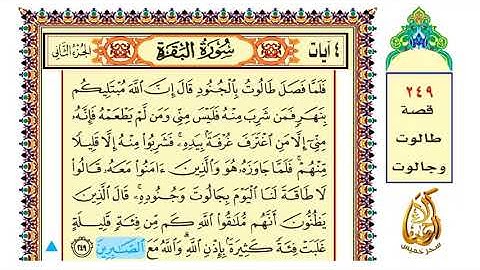 ٤ آيات
سُورَةُ البَقَرَةِ
الجزء الثاني
فَلَمَّا فَصَلَ طَالُوتُ بِالْجُنُودِ قَالَ إِنَّ اللَّهَ مُبْتَلِيكُم
بِنَهَرٍ فَمَن شَرِبَ مِنْهُ فَلَيْسَ مِنِّي وَمَن لَّمْ يَطْعَمْهُ فَإِنَّهُ
مِنِّي إِلَّا مَنِ اغْتَرَفَ غُرْفَةً بِيَدِهِ فَشَرِبُوا مِنْهُ إِلَّا قَلِيلًا
مِّنْهُمْ فَلَمَّا جَاوَزَهُ هُوَ وَالَّذِينَ آمَنُوا مَعَهُ قَالُوا
لَا طَاقَةَ لَنَا الْيَوْمَ بِجَالُوتَ وَجُنُودِهِ قَالَ الَّذِينَ
يَظُنُّونَ أَنَّهُم مُّلَاقُوا اللَّهِ كَم مِّن فِئَةٍ قَلِيلَةٍ
غَلَبَتْ فِئَةً كَثِيرَةً بِإِذْنِ اللَّهِ وَاللَّهُ مَعَ الصَّابِرِينَ ٢٤٩
٢٤٩
قصة
طالوت
وجالوت
سحر خميس